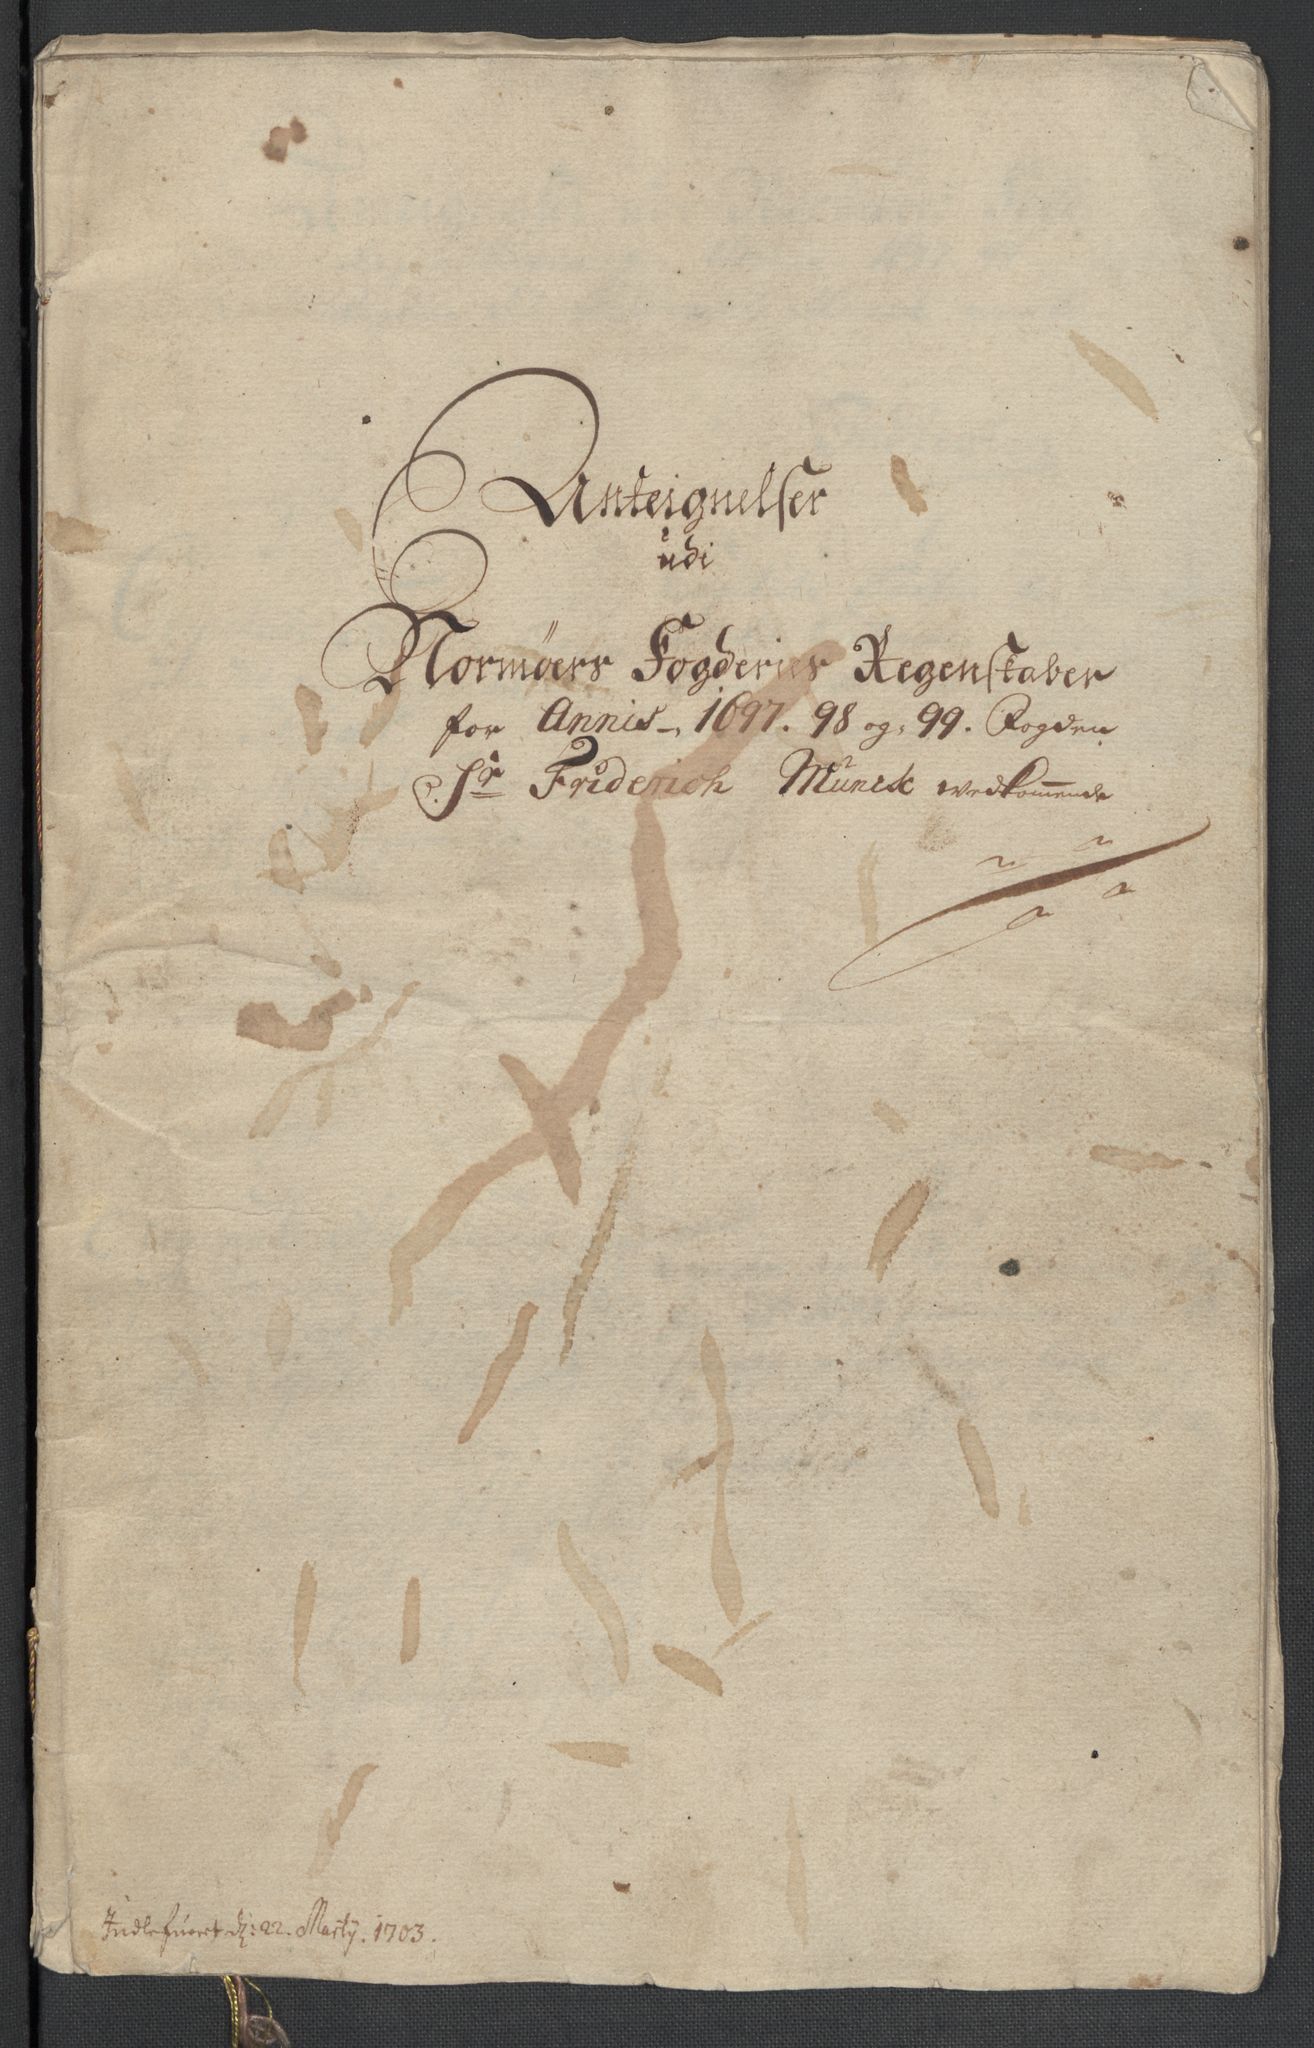 Anteignelser
udi
Normøers Fogderies Regenskaber
for Annis 1697. 98 og 99. Fogden
Sr Friderich Munck wedkommende
Indlefuert d: 22. Marty. 1703.